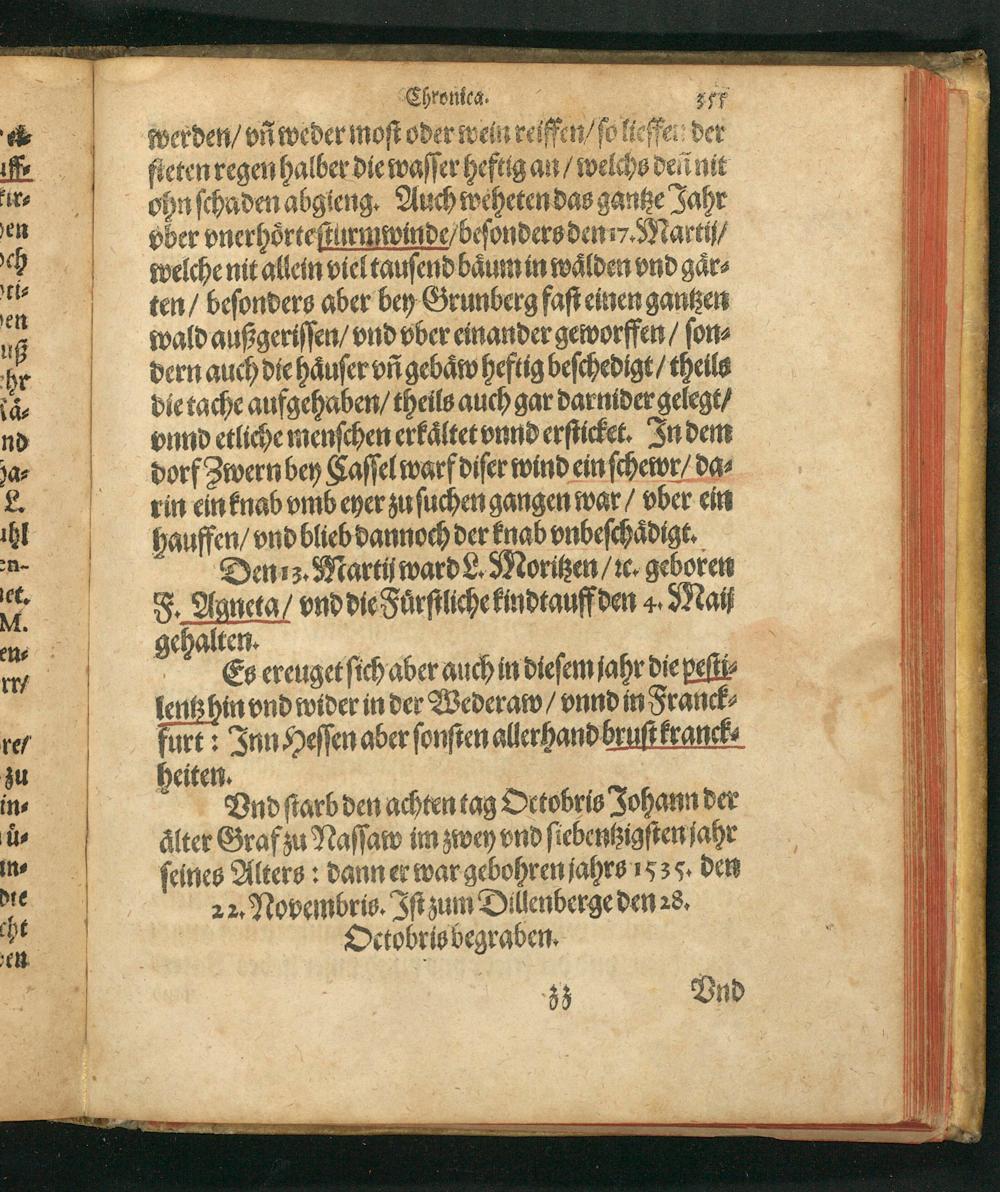 Chronica. 355
werden/ vñ weder most oder wein reiffen/ so lieffen der
steten regen halber die wasser heftig an/ welchs deñ nit
ohn schaden abgieng. Auch weheten das gantze Jahr
vber vnerhörte sturmwinde/ besonders den 17. Martij/
welche nit allein viel tausend bäum in wälden vnd gär-
ten/ besonders aber bey Grunberg fast einen gantzen
wald außgerissen/ vnd vber einander geworffen/ son-
dern auch die häuser vñ gebäw heftig beschedigt/ theils
die tache aufgehaben/ theils auch gar darnider gelegt/
vnnd etliche menschen erkältet vnnd ersticket. In dem
dorf Zwern bey Cassel warf diser wind ein schewr/ da-
rin ein knab vmb eyer zu suchen gangen war/ vber ein
hauffen/ vnd blieb dannoch der knab vnbeschädigt.
Den 13. Martij ward L. Moritzen/ ꝛc. geboren
F. Agneta/ vnd die Fürstliche kindtauff den 4. Maij
gehalten.
Es ereuget sich aber auch in diesem jahr die pesti-
lentz hin vnd wider in der Wederaw/ vnnd in Franck-
furt: Inn Hessen aber sonsten allerhand brustkranck-
heiten.
Vnd starb den achten tag Octobris Johann der
älter Graf zu Nassaw im zwey vnd siebentzigsten jahr
seines Alters: dann er war gebohren jahrs 1535. den
22. Novembris. Ist zum Dillenberge den 28.
Octobris begraben.
zz Vnd
uff-
kir-
den
och
oti-
uß
nd
ha-
L.
uhl
en-
net.
M.
en-
rr/
re/
zu
in-
ü-
an-
dte
cht